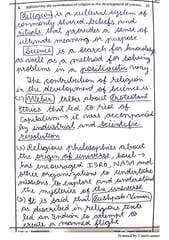 the contribution of religion to the development of science.
Religion is a cultural system of
commonly shared beliefs and
rituals that provides a sense of
ultimate meaning or purpose.
Science is a search for knowledge
as well as a method for solving
problems in a positivistic way.
The contribution of religion
in the development of science is:
Weber talks about Protestant
Ethics that led to rise of
Capitalism → it was accompanied
by industrial and scientific
revolution
Religious philosophies about
the origin of universe, soul
has encouraged ISRO, NASA and
other organizations to undertake
missions to explore and understand
the mysteries of the universe
It is said that Pushpak Viman
as described in religious texts
led an Indian to attempt to
create a manned flight